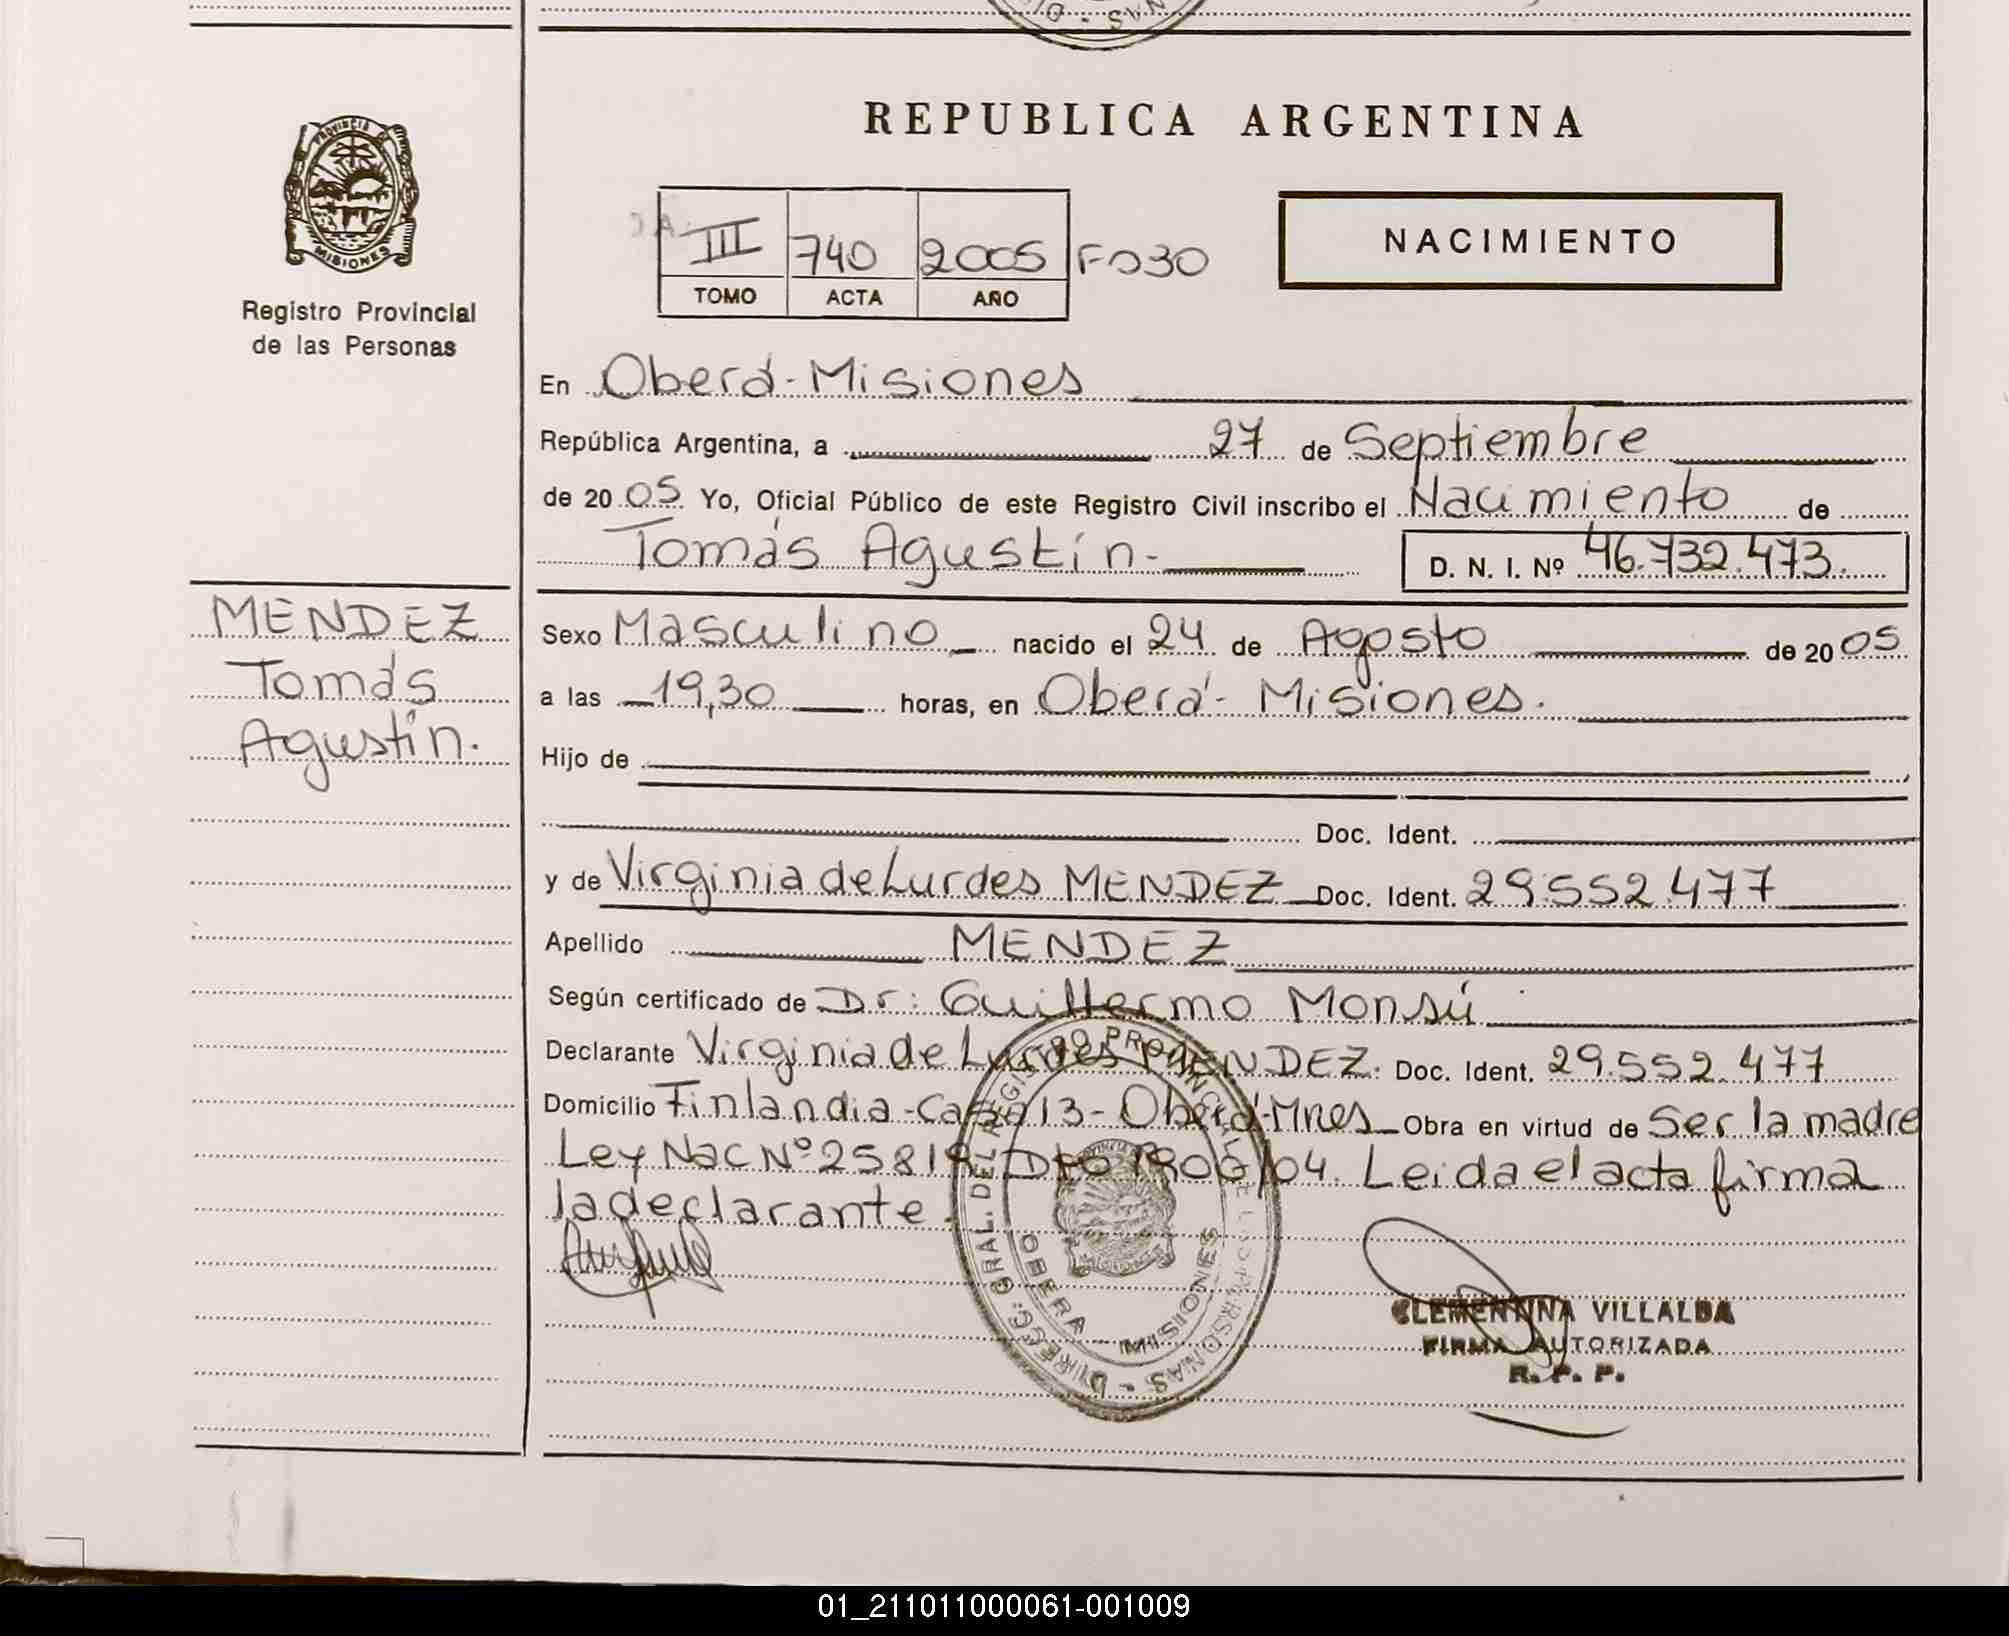 REPUBLICA ARGENTINA
PROVINCIA D MISIONES
Registro Provincial
de las Personas
III 740 2005 Fº 30
TOMO ACTA AÑO
NACIMIENTO
En Oberá - Misiones
República Argentina, a 27 de Septiembre
de 20 05 Yo, Oficial Público de este Registro Civil inscribo el Nacimiento de
Tomás Agustín - D. N. I. Nº 46.732.473.
MENDEZ
Tomás
Agustín.
Sexo Masculino nacido el 24 de Agosto de 20 05
a las 19,30 horas, en Oberá - Misiones.
Hijo de
Doc. Ident.
y de Virginia de Lurdes MENDEZ Doc. Ident. 29.552.477
Apellido MENDEZ
Según certificado de Dr: Guillermo Monsú
Declarante Virginia de Lurdes MENDEZ. Doc. Ident. 29.552.477
Domicilio Finlandia - Casa 13 - Oberá - Mnes Obra en virtud de Ser la madre
Ley Nac Nº 25819 Dto 1906/04. Leida el acta firma
la declarante.
DIRECC. GRAL. DEL REGISTRO PROVINCIAL DE LAS PERSONAS -
OBERA - MISIONES
CLEMENTINA VILLALBA
FIRMA AUTORIZADA
R. P. P.
01_211011000061-001009